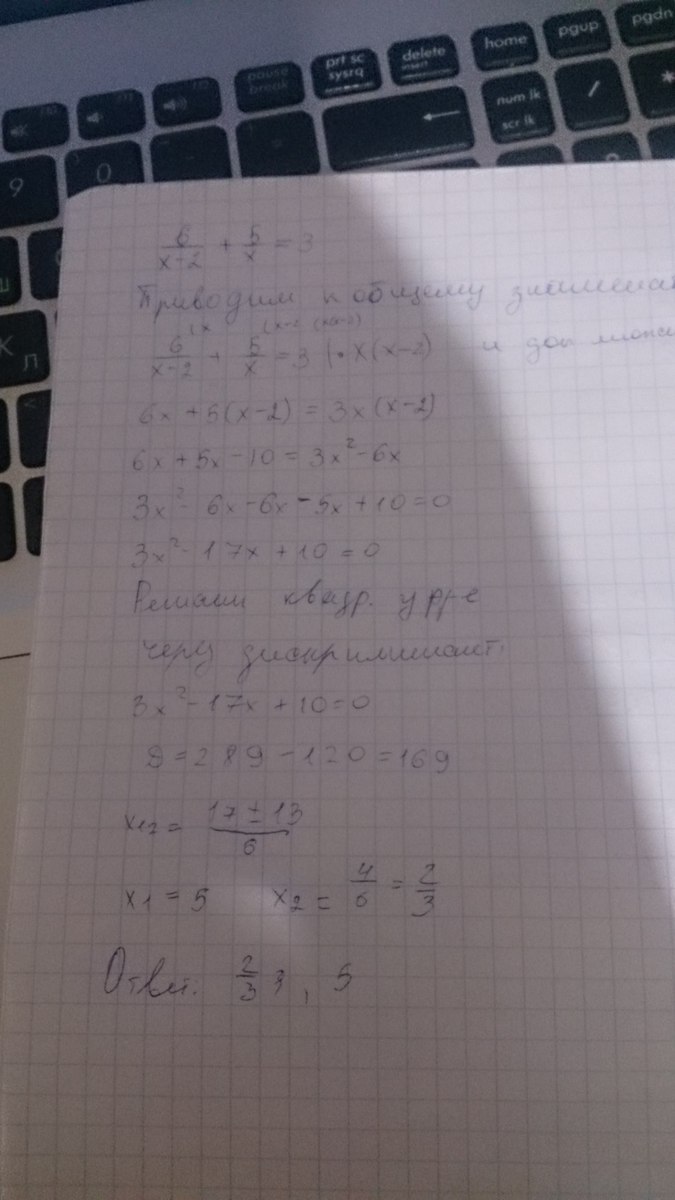 prt sc sysrq delete insert home pgup pgdn
pause break
num lk scr lk / *
9 0
Ш
К Л
6/(x-2) + 5/x = 3
Приводим к общему знаменат
6/(x-2) + 5/x = 3 | • x(x-2) и доп
6x + 5(x-2) = 3x(x-2)
6x + 5x - 10 = 3x² - 6x
3x² - 6x - 6x - 5x + 10 = 0
3x² - 17x + 10 = 0
Решаем квадр. ур-е
через дискриминант:
3x² - 17x + 10 = 0
D = 289 - 120 = 169
x12 = (17 ± 13)/6
x1 = 5 x2 = 4/6 = 2/3
Ответ. 2/3 ; 5